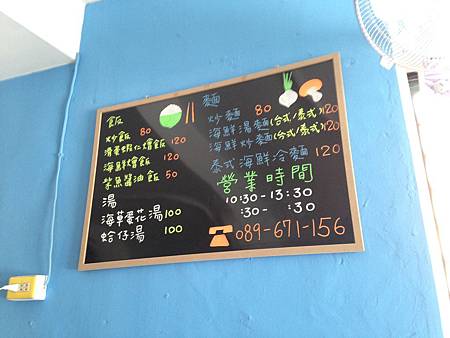 飯
炒飯 80
滑蛋蝦仁燴飯 120
海鮮燴飯 120
柴魚醬油飯 50
湯
海草蛋花湯 100
蛤仔湯 100
麵
炒麵 80
海鮮湯麵(台式/泰式)120
海鮮炒麵(台式/泰式)120
泰式海鮮冷麵 120
營業時間
10:30-13:30
:30- :30
089-671-156